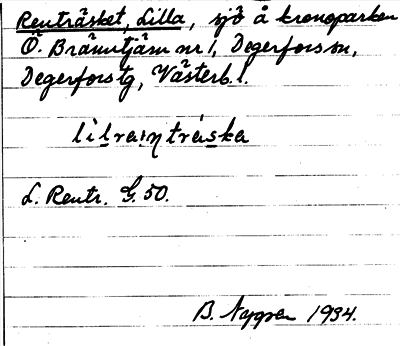 Renträsket, Lilla, sjö å kronoparken
Ö. Bränntjäm nr 1, Degerfors sn,
Degerforstg, Västerb. l.
lìlra1ŋtráska
L. Rentr. G. 50.
B. Nygren 1934.